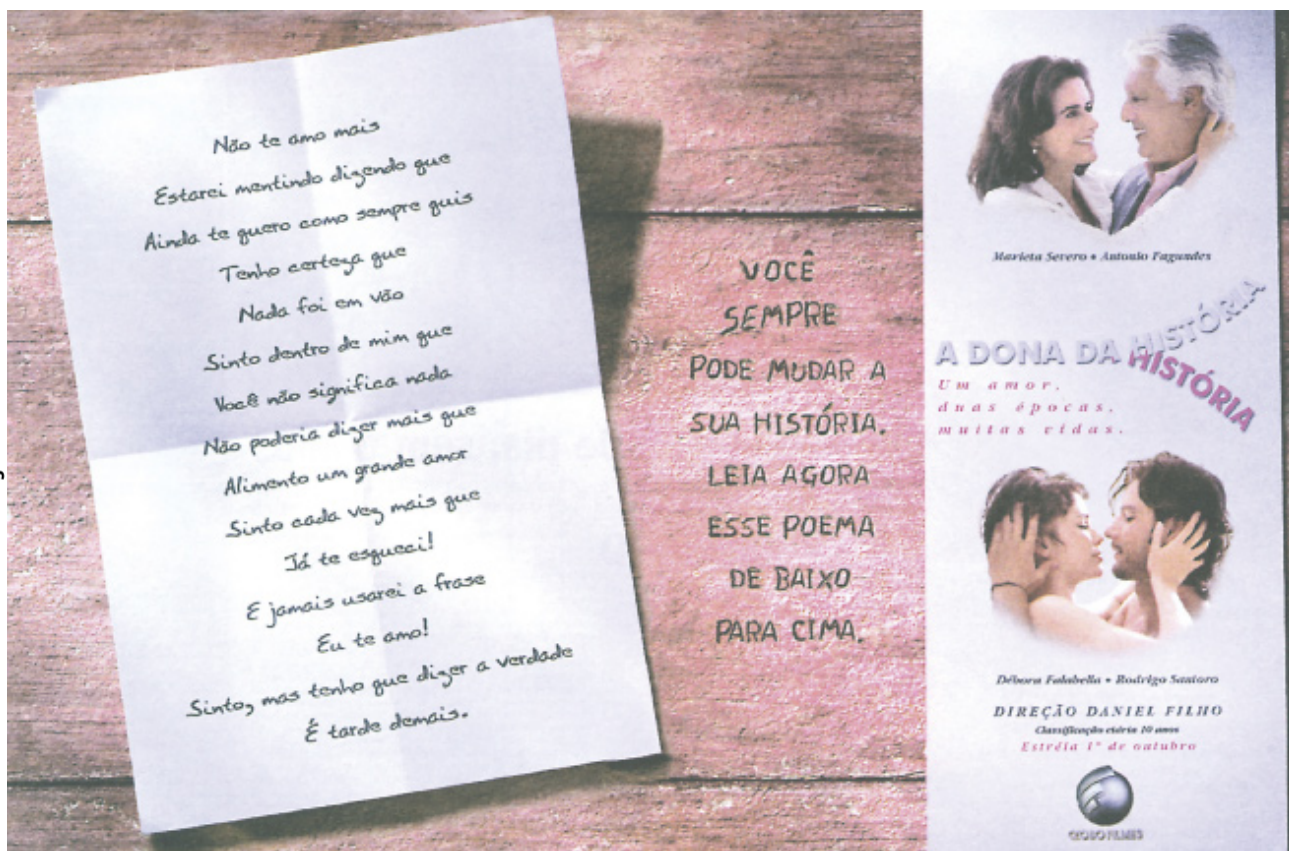 Não te amo mais
Estarei mentindo dizendo que
Ainda te quero como sempre quis
Tenho certeza que
Nada foi em vão
Sinto dentro de mim que
Você não significa nada
Não poderia dizer mais que
Alimento um grande amor
Sinto cada vez mais que
Já te esqueci!
E jamais usarei a frase
Eu te amo!
Sinto, mas tenho que dizer a verdade
É tarde demais.
VOCÊ
SEMPRE
PODE MUDAR A
SUA HISTÓRIA.
LEIA AGORA
ESSE POEMA
DE BAIXO
PARA CIMA.
Marieta Severo • Antonio Fagundes
A DONA DA HISTÓRIA
HISTÓRIA
Um amor.
duas épocas.
muitas vidas.
Débora Falabella • Rodrigo Santoro
DIREÇÃO DANIEL FILHO
Classificação etária 10 anos
Estréia 1º de outubro
GLOBO FILMES